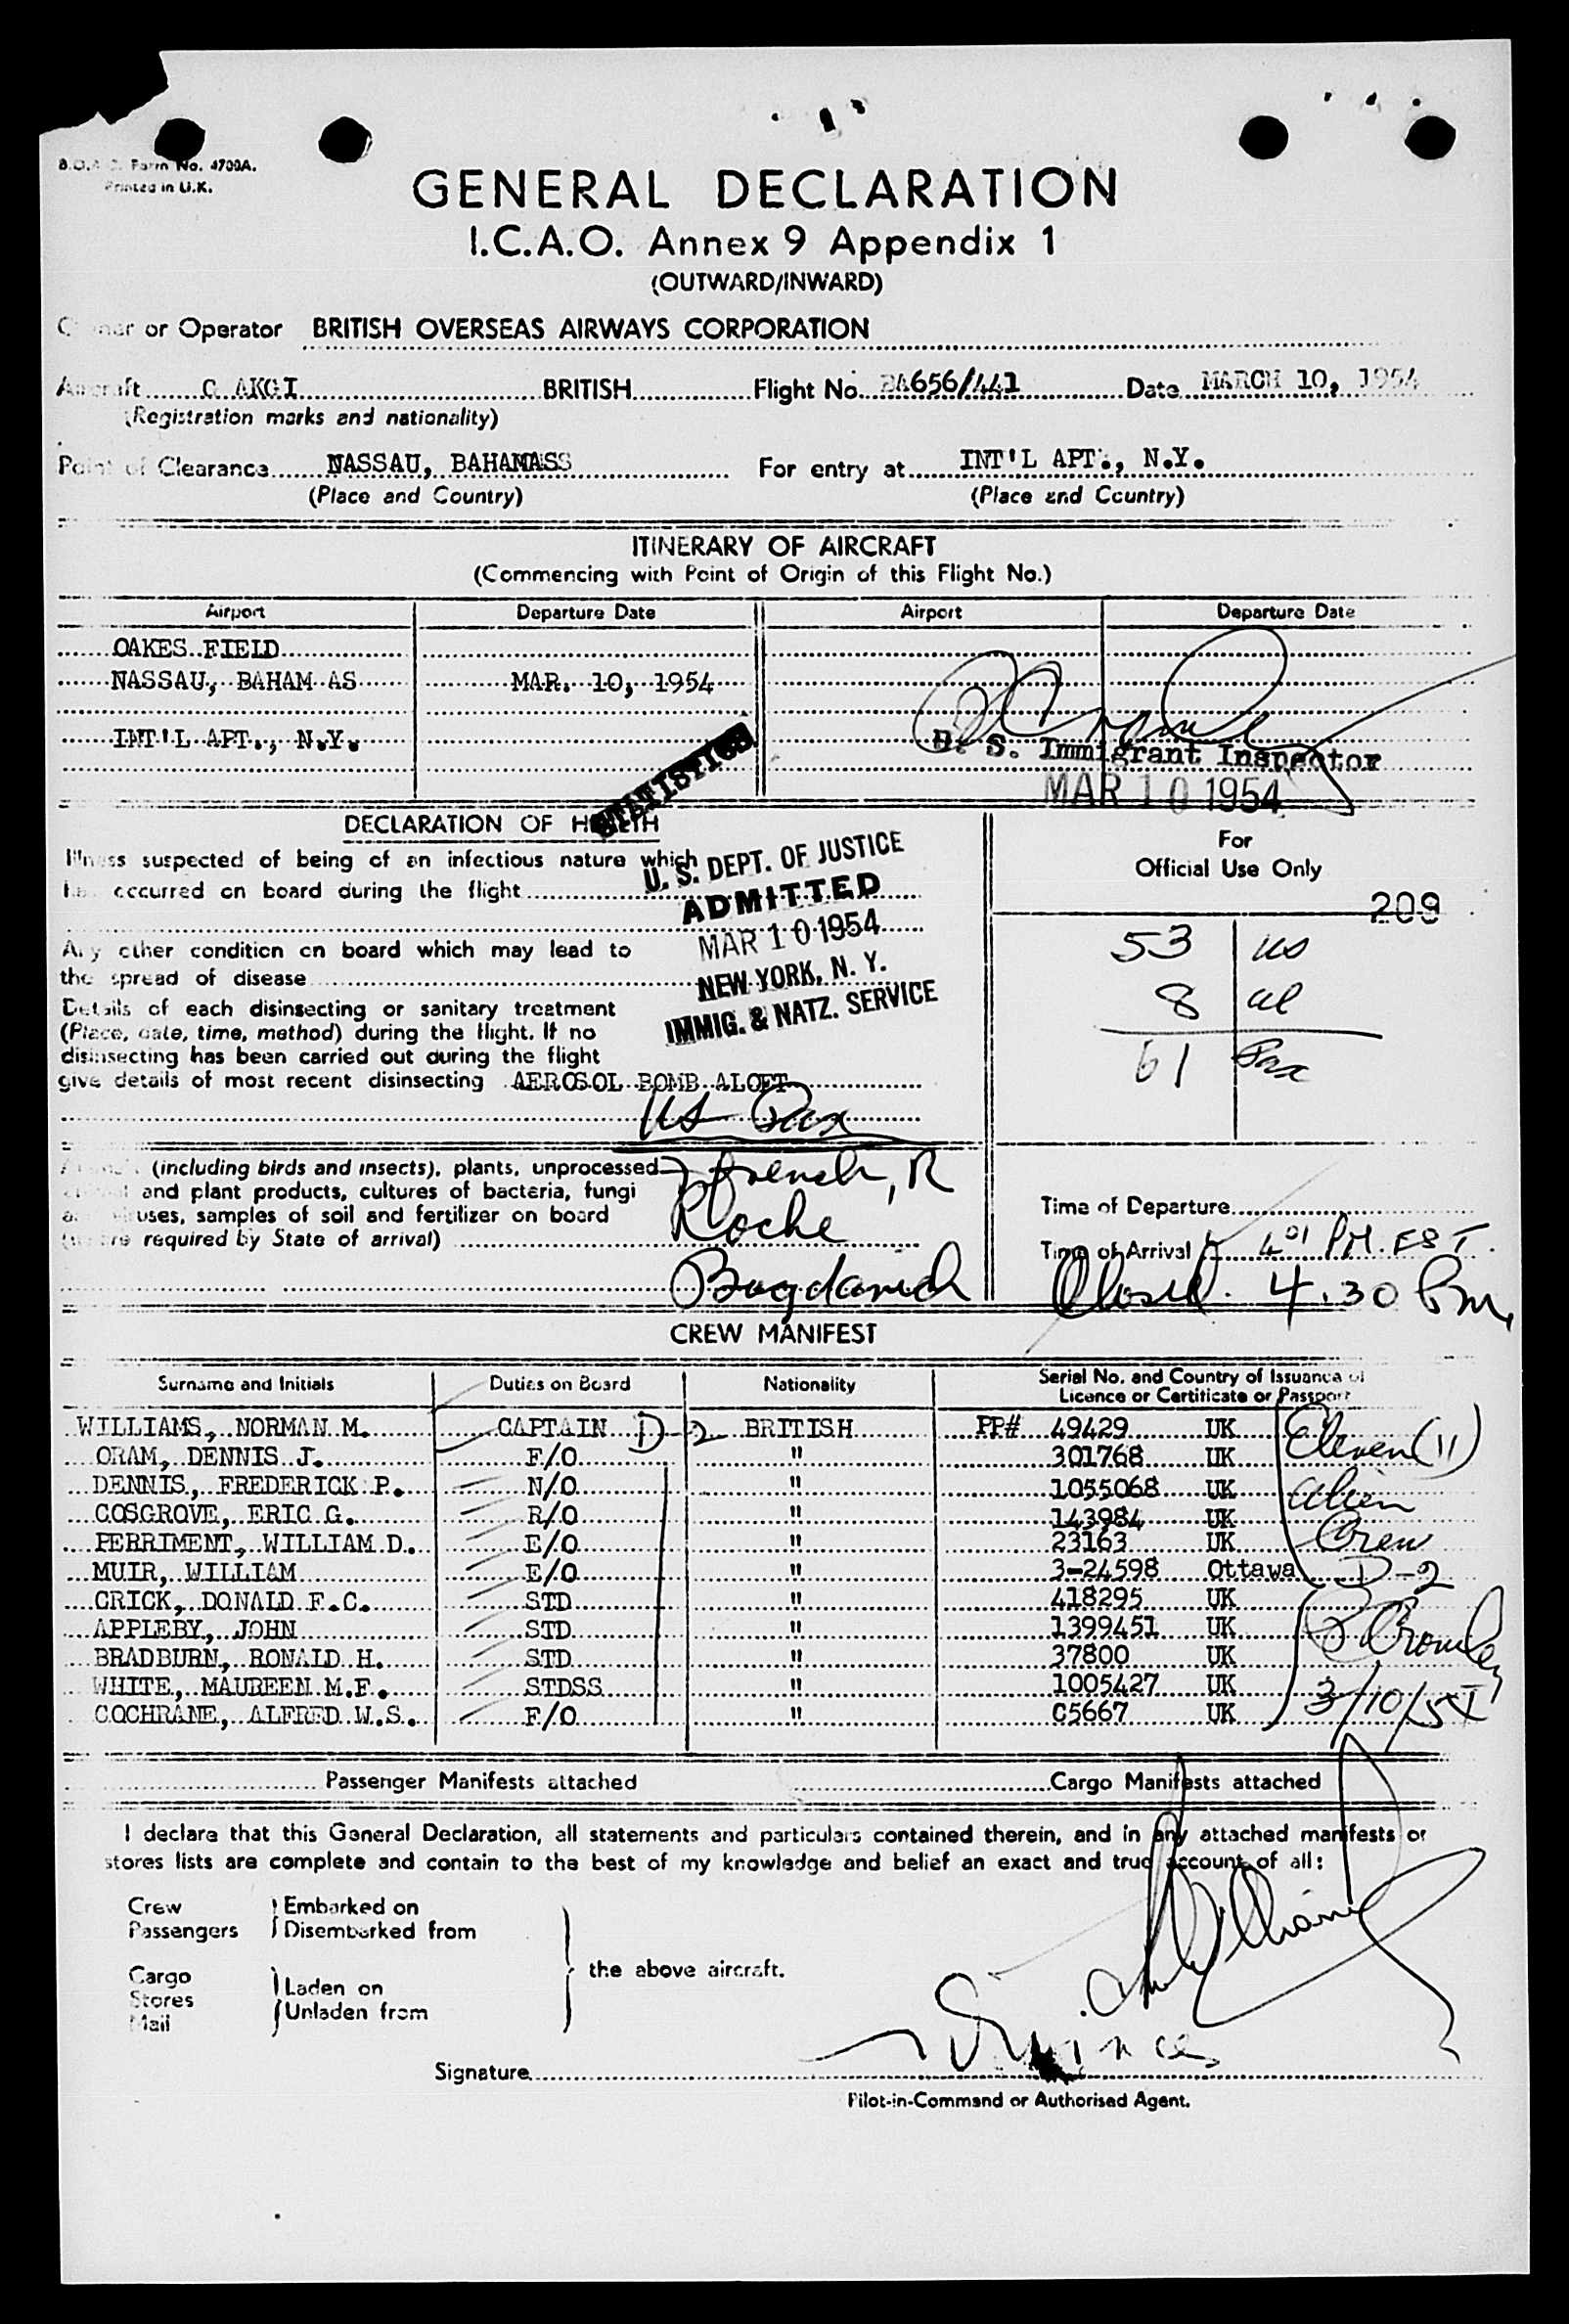 Form No. 4700A.
Printed in U.K.
GENERAL DECLARATION
I.C.A.O. Annex 9 Appendix 1
(OUTWARD/INWARD)
or Operator BRITISH OVERSEAS AIRWAYS CORPORATION
Aircraft G AKGI BRITISH Flight No. BA656/441 Date MARCH 10, 1954
(Registration marks and nationality)
Point of Clearance NASSAU, BAHAMASS For entry at INT'L APT., N.Y.
(Place and Country) (Place and Country)
ITINERARY OF AIRCRAFT
(Commencing with Point of Origin of this Flight No.)
Airport Departure Date Airport Departure Date
OAKES FIELD
NASSAU, BAHAM AS MAR. 10, 1954
INT'L APT., N.Y.
U. S. Immigrant Inspector
MAR 10 1954
STATISTICS
DECLARATION OF HEALTH
Illness suspected of being of an infectious nature which
has occurred on board during the flight
U. S. DEPT. OF JUSTICE
ADMITTED
MAR 10 1954
NEW YORK, N. Y.
IMMIG. & NATZ. SERVICE
Any other condition on board which may lead to
the spread of disease
Details of each disinsecting or sanitary treatment
(Place, date, time, method) during the flight. If no
disinsecting has been carried out during the flight
give details of most recent disinsecting AEROSOL BOMB ALOFT
For
Official Use Only
209
53 US
8 al
61 Pax
US Pax
French, R
Roche
Bogdanich
(including birds and insects), plants, unprocessed
and plant products, cultures of bacteria, fungi
uses, samples of soil and fertilizer on board
required by State of arrival)
Time of Departure
Time of Arrival 4 01 PM. EST.
Closed. 4.30 Pm.
CREW MANIFEST
Surname and Initials Duties on Board Nationality Serial No. and Country of Issuance of
Licence or Certificate or Passport
WILLIAMS, NORMAN M. CAPTAIN D-2 BRITISH PP# 49429 UK
ORAM, DENNIS J. F/O " 301768 UK
DENNIS, FREDERICK P. N/O " 1055068 UK
COSGROVE, ERIC G. R/O " 143984 UK
PERRIMENT, WILLIAM D. E/O " 23163 UK
MUIR, WILLIAM E/O " 3-24598 Ottawa
CRICK, DONALD F.C. STD " 418295 UK
APPLEBY, JOHN STD " 1399451 UK
BRADBURN, RONALD H. STD " 37800 UK
WHITE, MAUREEN M.F. STDSS " 1005427 UK
COCHRANE, ALFRED W.S. F/O " C5667 UK
Eleven (11)
alien
Crew
D-2
3/10/54
Passenger Manifests attached Cargo Manifests attached
I declare that this General Declaration, all statements and particulars contained therein, and in any attached manifests or
stores lists are complete and contain to the best of my knowledge and belief an exact and true account of all:
Crew
Passengers
Embarked on
Disembarked from
Cargo
Stores
Mail
Laden on
Unladen from
the above aircraft.
Signature
Pilot-in-Command or Authorised Agent.